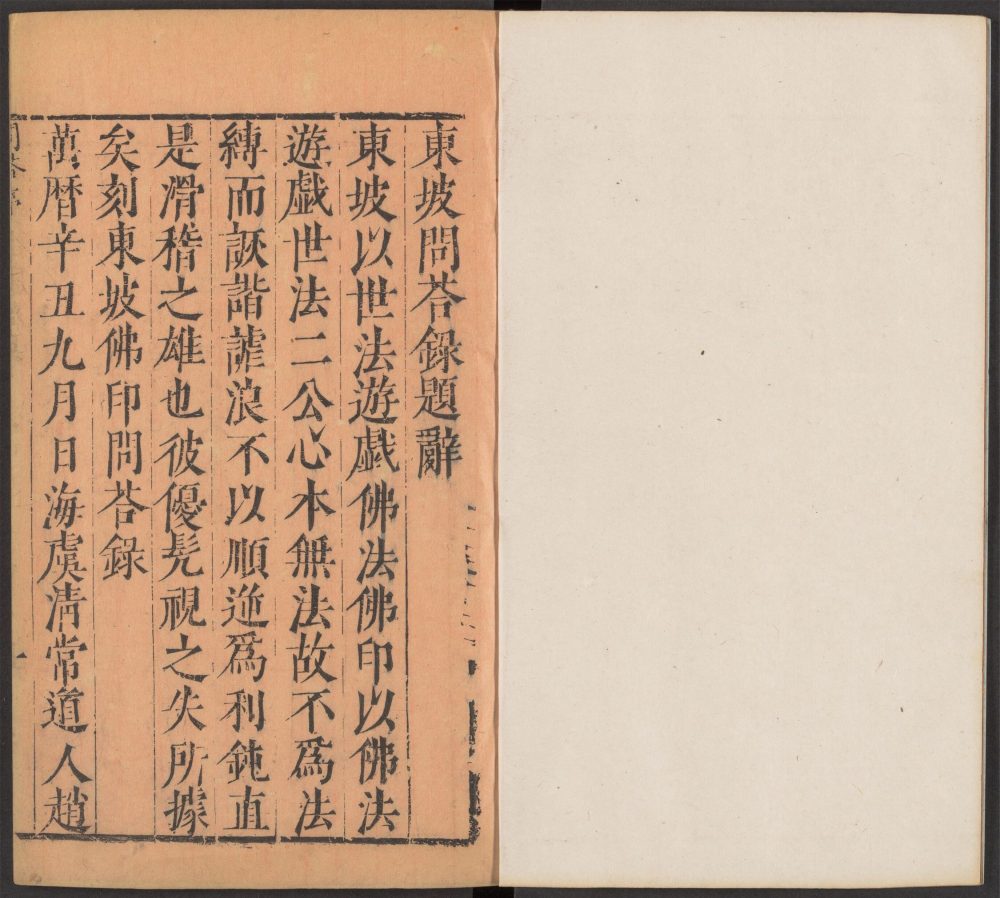 東坡問荅錄題辭
東坡以世法遊戲佛法佛印以佛法
遊戲世法二公心本無法故不爲法
縛而詼諧謔浪不以順逆爲利鈍直
是滑稽之雄也彼優髡視之失所據
矣刻東坡佛印問荅錄
萬曆辛丑九月日海虞清常道人趙
一